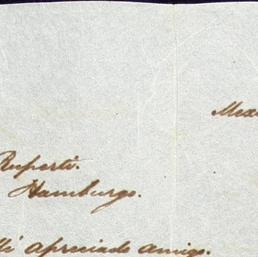 Mexi
Ruperti.
Hamburgo.
Mi apreciado amigo.